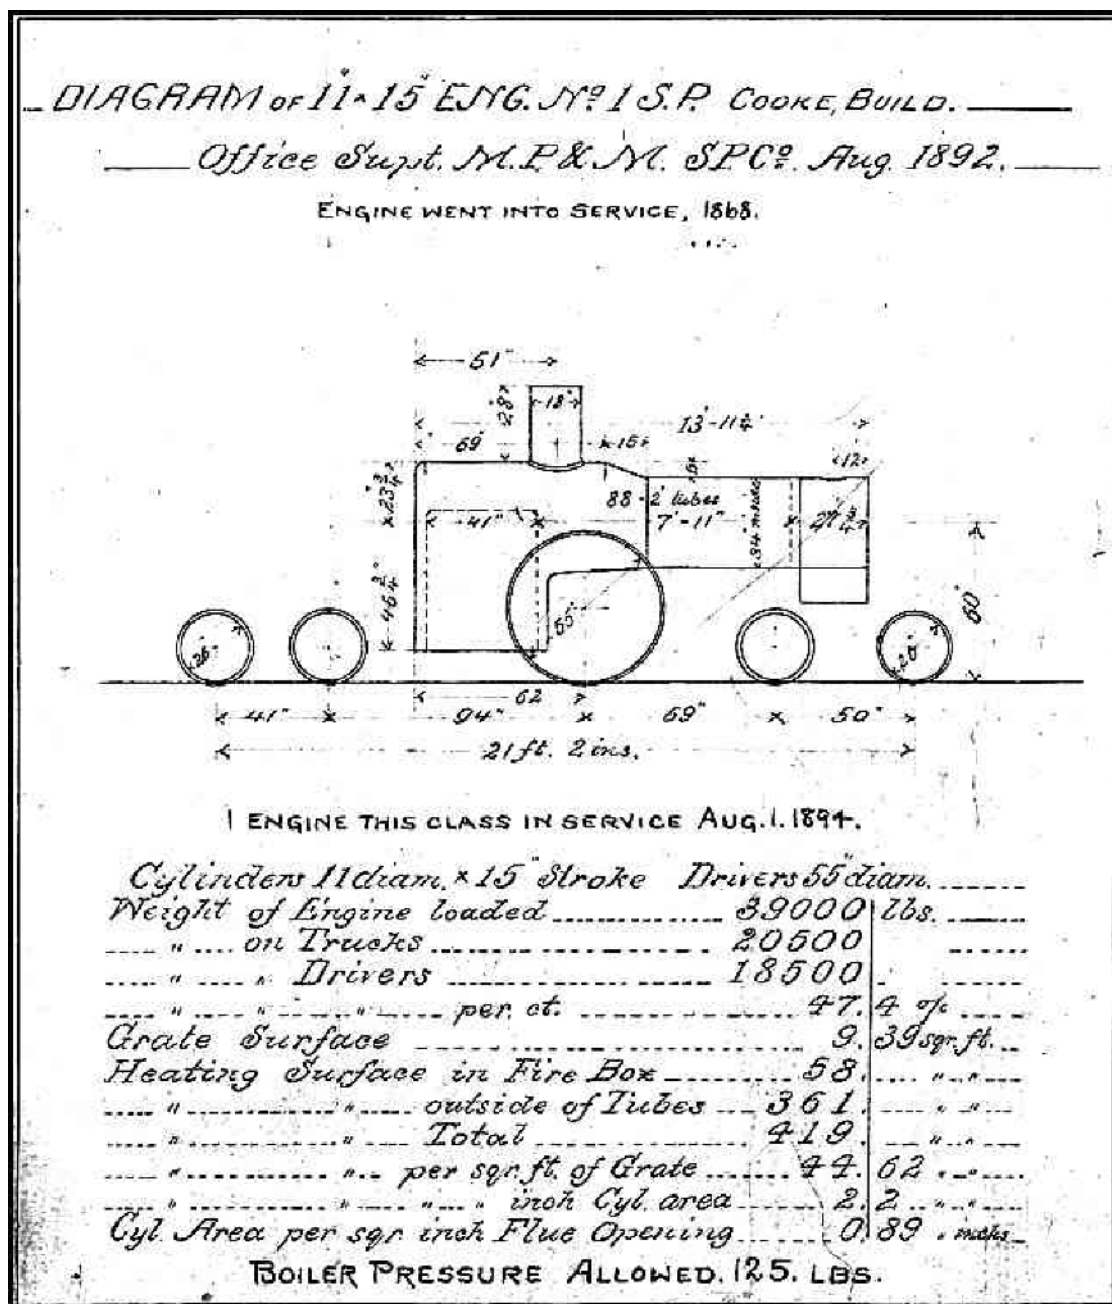 DIAGRAM OF 11" × 15" ENG. Nº 1 S.P. COOKE, BUILD.
Office Supt. M.P. & M. S.P.Cº. Aug. 1892.
ENGINE WENT INTO SERVICE, 1868.
51"
28"
18"
13'-11¼"
69"
15"
12"
23¾"
88-2" tubes
41"
7'-11"
34" inside
46¾"
60"
26"
55"
62
41"
94"
69"
50"
21 ft. 2 ins.
1 ENGINE THIS CLASS IN SERVICE AUG. 1. 1894.
Cylinders 11 diam. × 15" Stroke Drivers 55" diam.
Weight of Engine loaded 39000 lbs.
" on Trucks 20500
" " Drivers 18500
" " " per ct. 47.4 %
Grate Surface 9.39 sqr. ft.
Heating Surface in Fire Box 58. " "
" " outside of Tubes 361. " "
" " Total 419. " "
" " per sqr. ft. of Grate 44.62 " "
" " " " inch Cyl. area 2.2 " "
Cyl. Area per sqr. inch Flue Opening 0.89 " inchs
BOILER PRESSURE ALLOWED. 125. LBS.